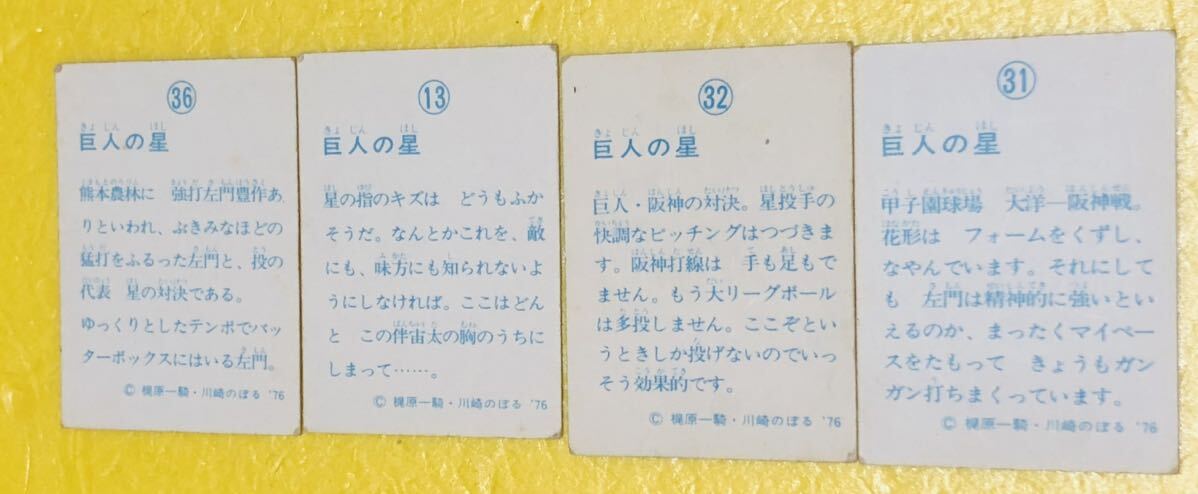 36
きょ じん ほし
巨人の星
熊本農林に 強打左門豊作あ
りといわれ、ぶきみなほどの
猛打をふるった左門と、投の
代表 星の対決である。
ゆっくりとしたテンポでバッ
ターボックスにはいる左門。
© 梶原一騎・川崎のぼる '76
13
きょ じん ほし
巨人の星
星の指のキズは どうもふか
そうだ。なんとかこれを、敵
にも、味方にも知られないよ
うにしなければ。ここはどん
と この伴宙太の胸のうちに
しまって……。
© 梶原一騎・川崎のぼる '76
32
きょ じん ほし
巨人の星
巨人・阪神の対決。星投手の
快調なピッチングはつづきま
す。阪神打線は 手も足もで
ません。もう大リーグボール
は多投しません。ここぞとい
うときしか投げないのでいっ
そう効果的です。
© 梶原一騎・川崎のぼる '76
31
きょ じん ほし
巨人の星
甲子園球場 大洋―阪神戦。
花形は フォームをくずし、
なやんでいます。それにして
も 左門は精神的に強いとい
えるのか、まったくマイペー
スをたもって きょうもガン
ガン打ちまくっています。
© 梶原一騎・川崎のぼる '76